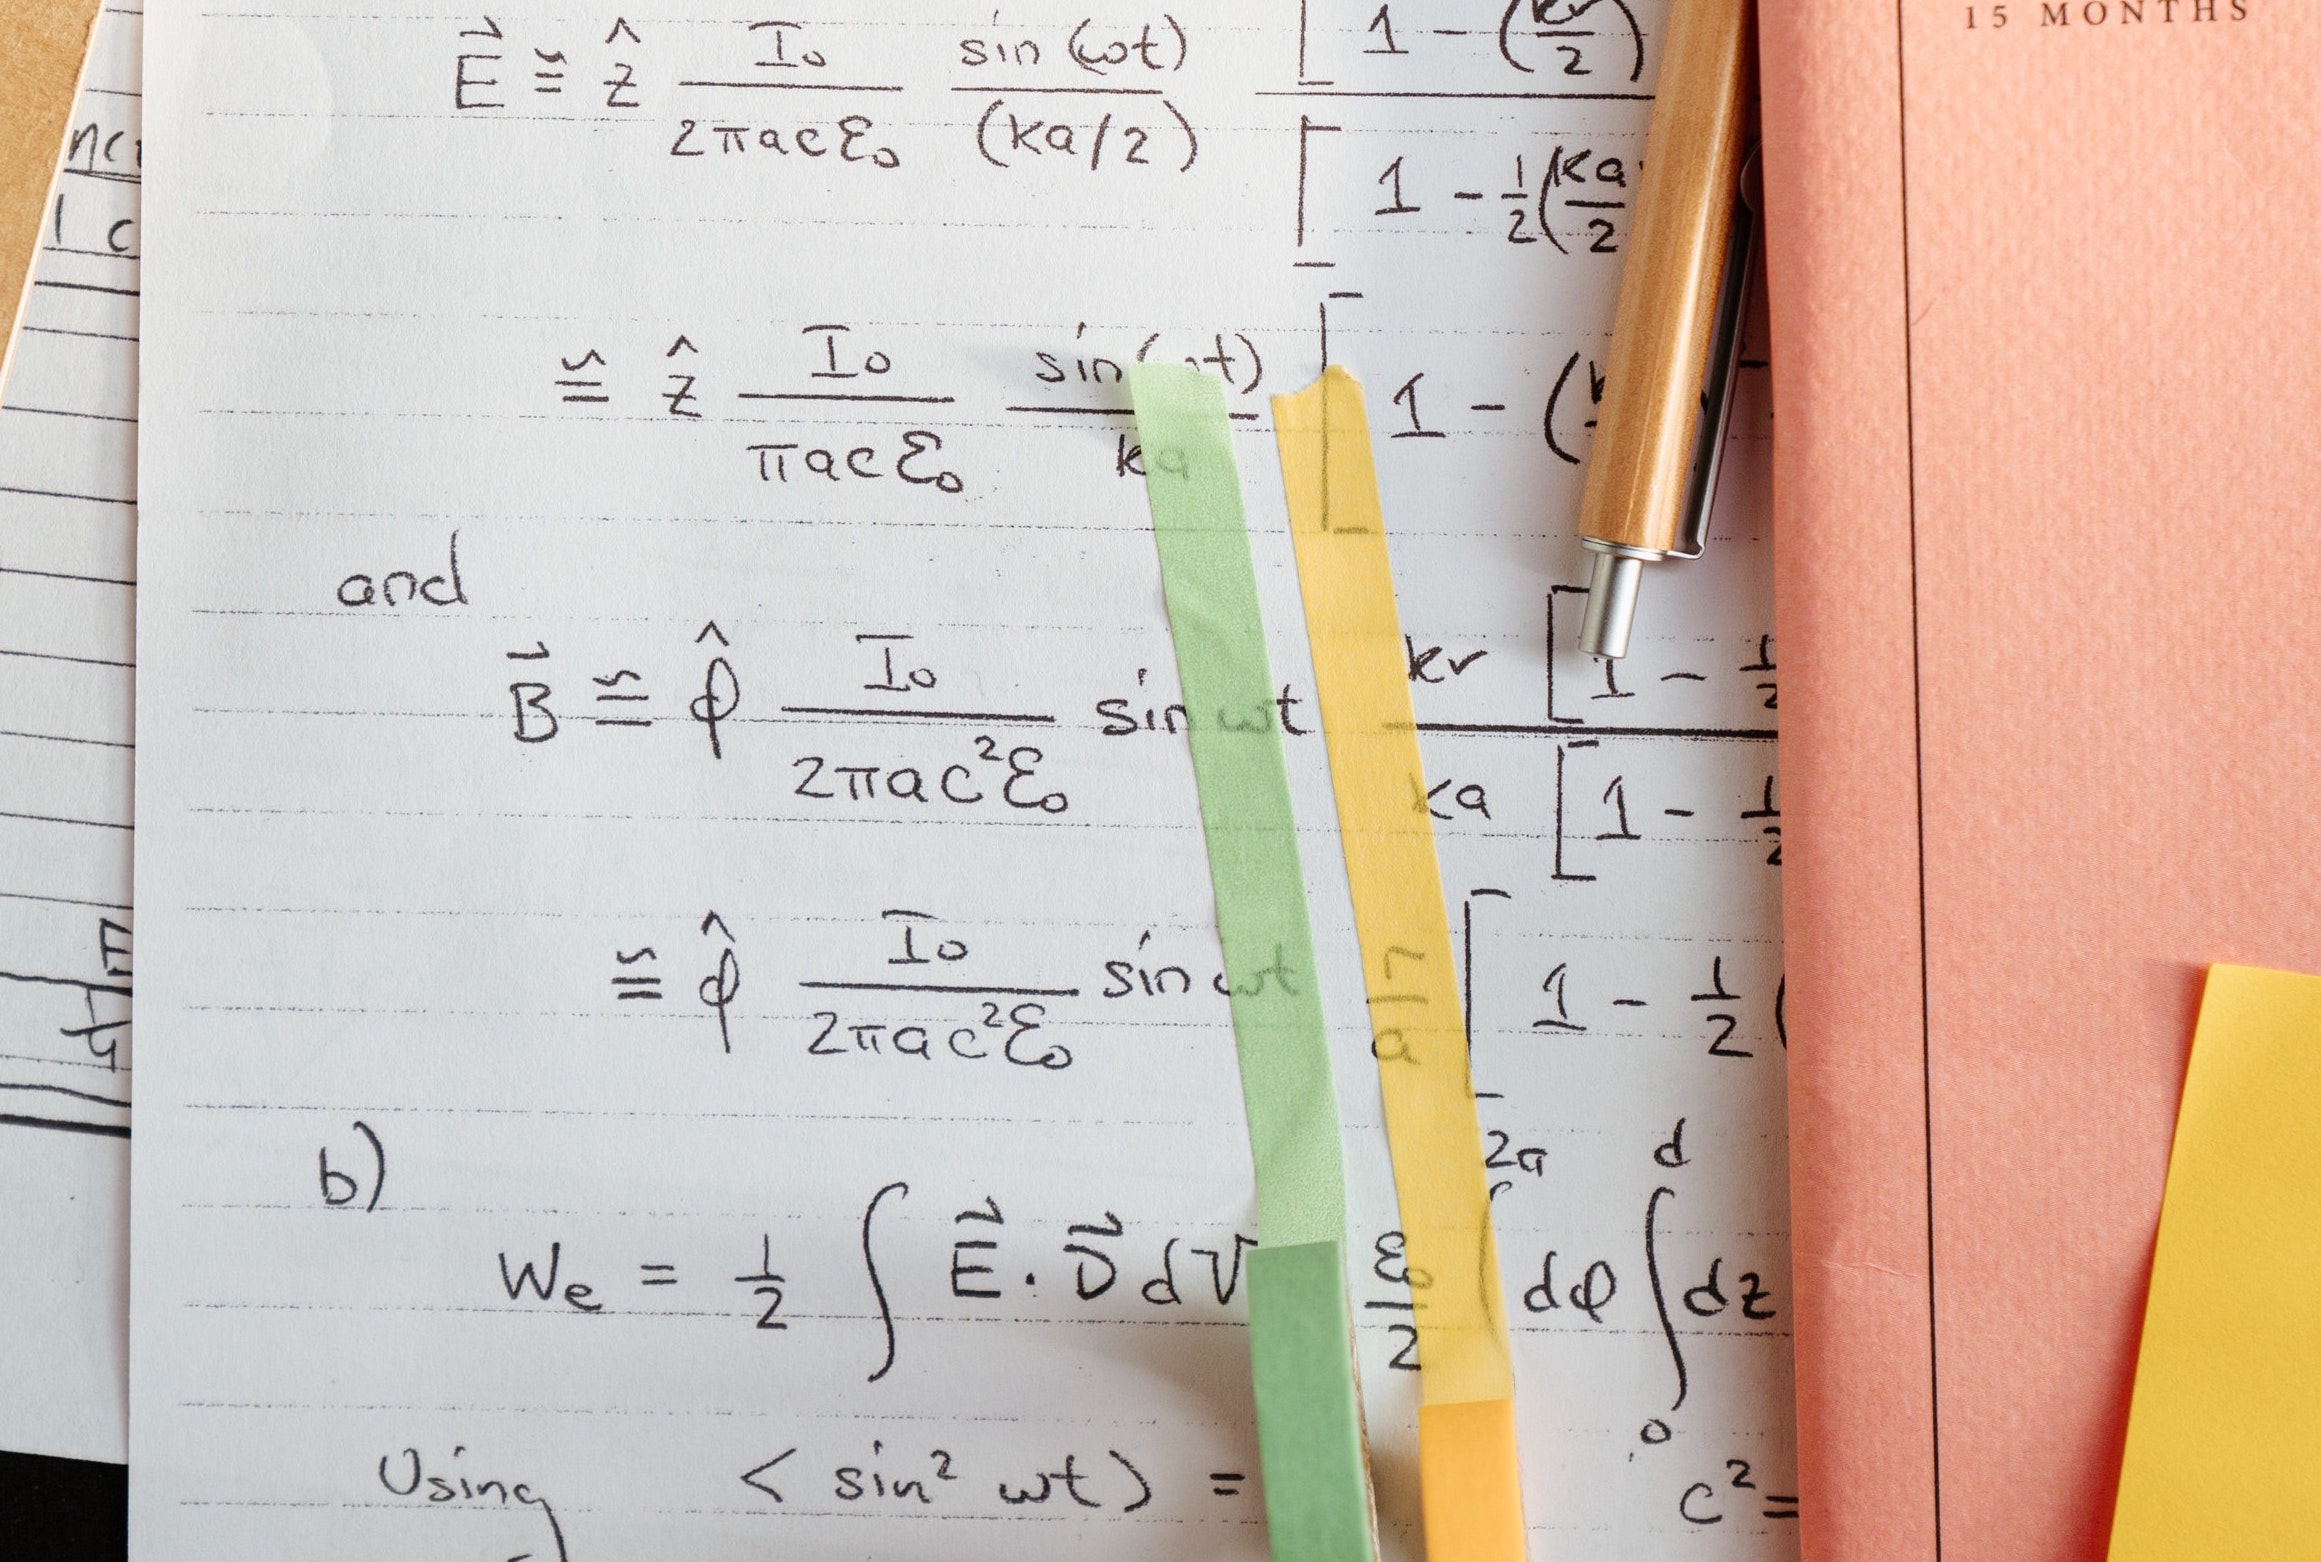 15 MONTHS
E⃗ ≅ ẑ I₀/(2πacε₀) sin(ωt)/(ka/2) [1 - (kr/2) / [1 - 1/2(ka/2
≅ ẑ I₀/(πacε₀) sin(ωt)/ka [1 - (
and
B⃗ ≅ φ̂ I₀/(2πac²ε₀) sin ωt kr [1 - 1/2 / ka [1 - 1/2
≅ φ̂ I₀/(2πac²ε₀) sin ωt r/a [1 - 1/2 (
b)
Wₑ = 1/2 ∫ E⃗ · D⃗ dV ε₀/2 ∫^2π dφ ∫₀^d dz
Using < sin² ωt > = c² =